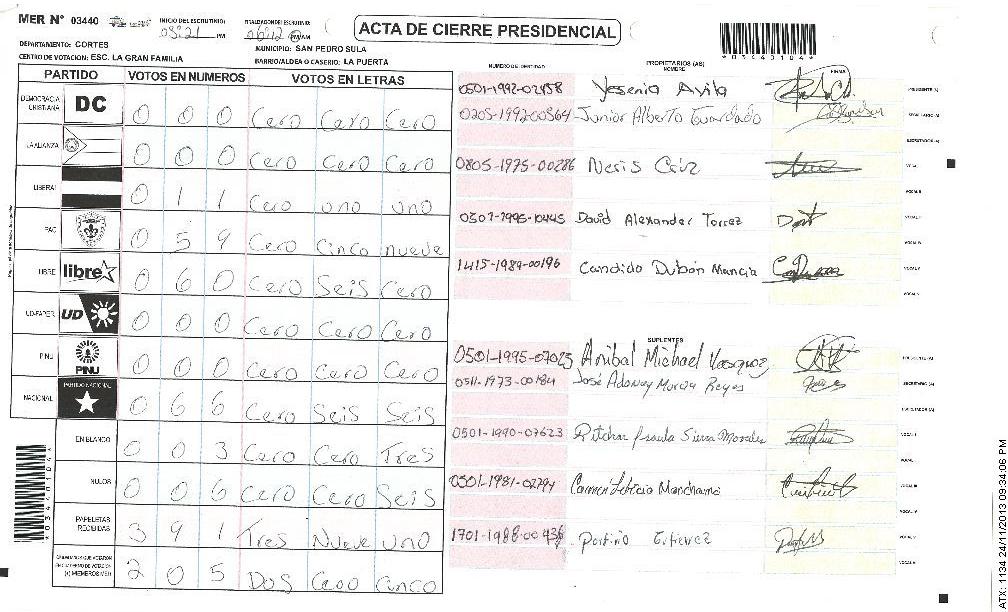 MER N° 03440
INICIO DEL ESCRUTINIO:
PM
ACTA DE CIERRE PRESIDENCIAL
*03440104*
DEPARTAMENTO: CORTES
MUNICIPIO: SAN PEDRO SULA
CENTRO DE VOTACION: ESC. LA GRAN FAMILIA
BARRIO/ALDEA O CASERIO: LA PUERTA
PARTIDO VOTOS EN NUMEROS VOTOS EN LETRAS
NUMERO DE IDENTIDAD PROPIETARIOS (AS) NOMBRE FIRMA
DEMOCRACIA CRISTIANA DC 0 0 0 Cero Cero Cero
LA ALIANZA 0 0 0 Cero Cero Cero
LIBERAL 0 1 1 Cero uno uno
PAC 0 5 9 Cero Cinco nueve
LIBRE libre 0 6 0 Cero Seis Cero
UD-FAPER UD 0 0 0 Cero Cero Cero
PINU PINU 0 0 0 Cero Cero Cero
NACIONAL PARTIDO NACIONAL 0 6 6 Cero Seis Seis
EN BLANCO 0 0 3 Cero Cero Tres
NULOS 0 0 6 Cero Cero Seis
PAPELETAS RECIBIDAS 3 9 1 Tres Nueve uno
2 0 5 Dos Cero Cinco
0501-1992-02458 Yesenia Avila PRESIDENTE (A)
0205-1992-00564 Junior Alberto SECRETARIO (A)
ESCRUTADOR (A)
0805-1975-00286 Neris Cruz VOCAL I
VOCAL II
0501-1995-10445 David Alexander Torrez VOCAL III
VOCAL IV
1415-1989-00196 Candido Dubón Mancia VOCAL V
SUPLENTES
0501-1995-07023 Anibal Michael Vasquez PRESIDENTE (A)
0511-1973-00184 José Adonay Murcia Reyes SECRETARIO (A)
ESCRUTADOR (A)
0501-1990-07623 Sierra Morales VOCAL I
VOCAL II
0501-1981-02794 Carmen Leticia VOCAL III
VOCAL IV
1701-1988-00436 Porfirio Gutierrez VOCAL V
*03440104*
ATX: 1134 24/11/2013 09:34:06 PM